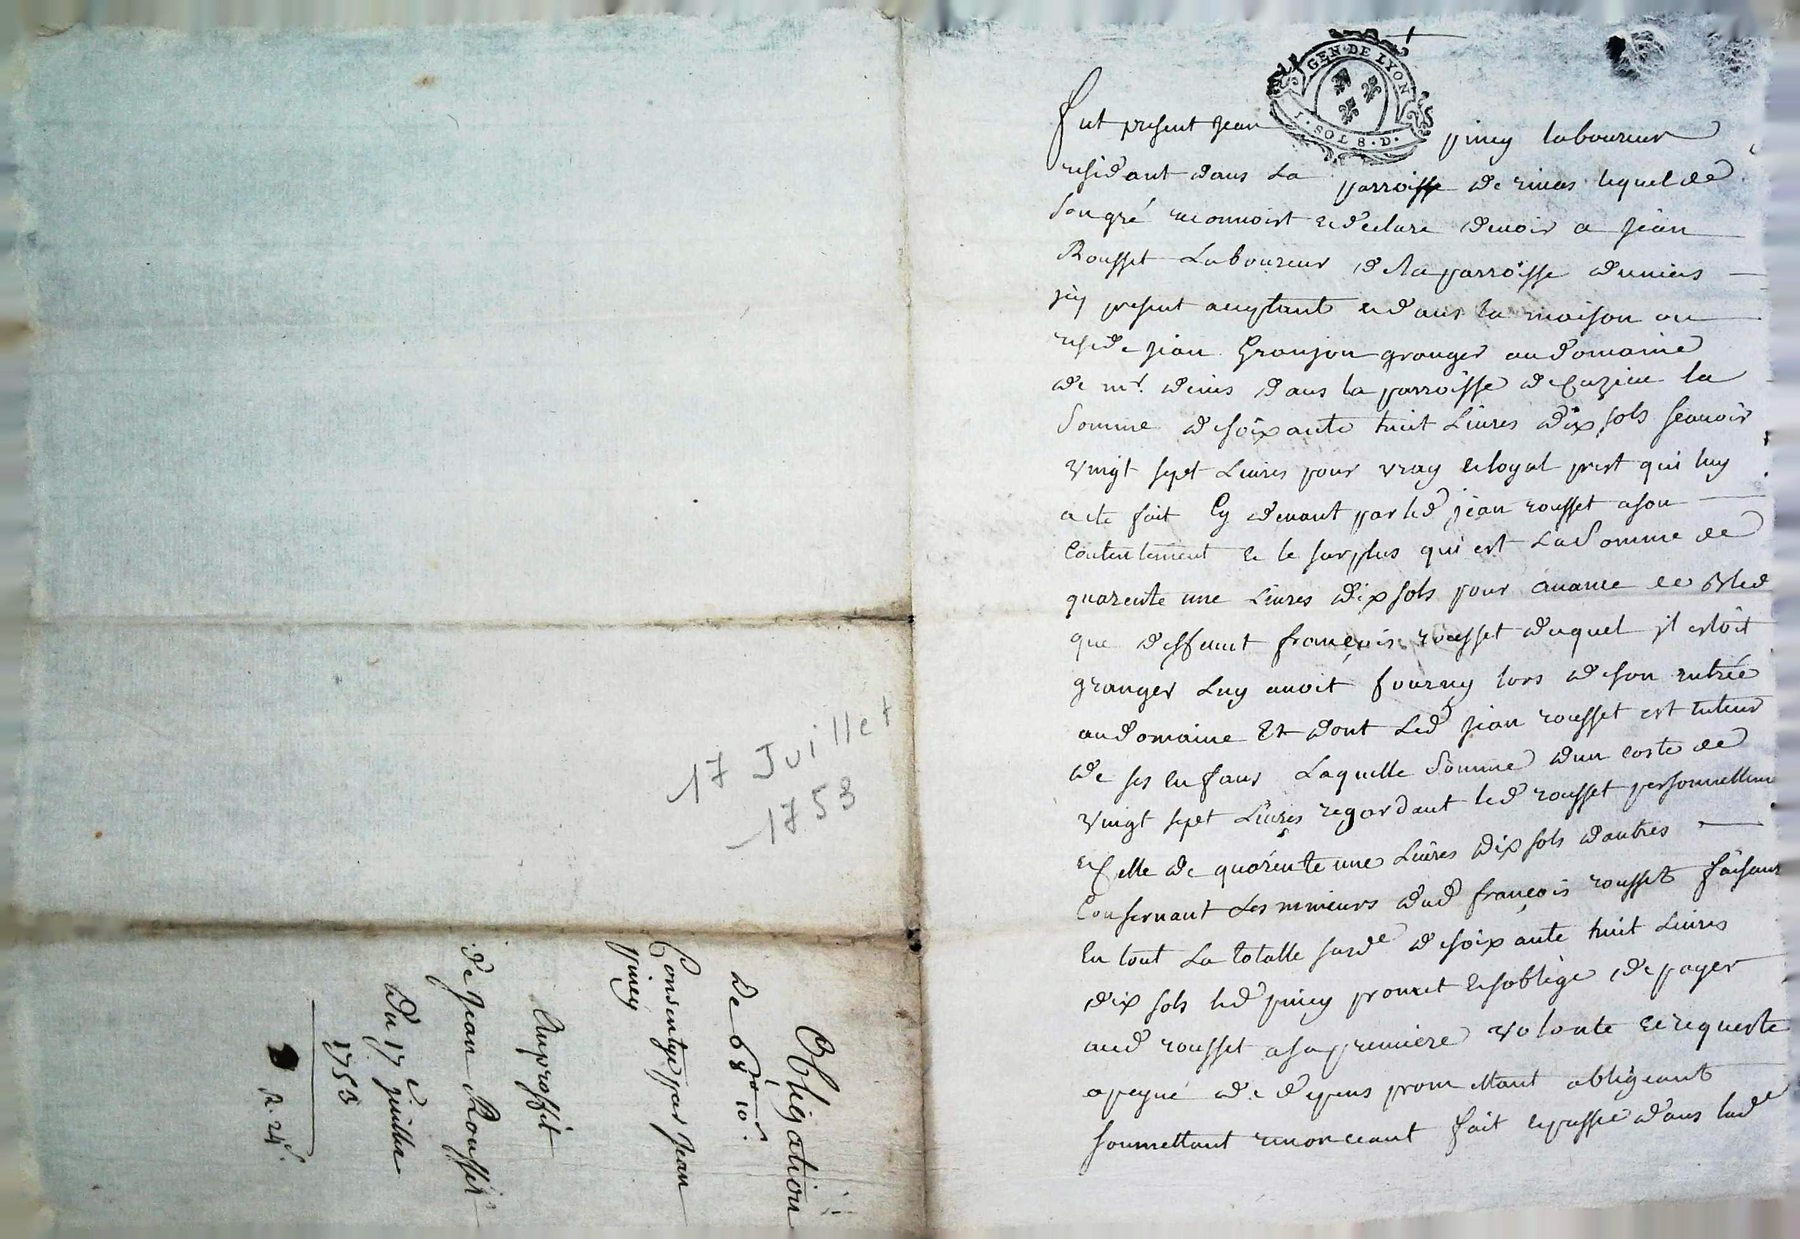 17 Juillet
1753
Obligation
De 68# 10s.
Consentye par Jean
piney
Auproffit
de Jean Rousset
Du 17e juillet
1753
R. 24s.
GEN. DE LYON
1. SOL 8. D.
fut present Jean piney laboureur
residant dans La parroisse de lequel de
son gré reconnoist et declare devoir a Jean
Rousset Laboureur de la parroisse
icy present acceptant et dans la maison ou
reside jean Granjon granger au domaine
de mr. denis dans la parroisse de Cuzieu la
Somme de soixante huit Livres dix sols scavoir
vingt sept Livres pour vray et loyal prest qui luy
a ete fait Cy devant par led jean rousset a son
Contentement et le surplus qui est La Somme de
quarente une Livres dix sols pour avance de Bled
que deffunt françois rousset duquel il estoit
granger Luy avoit fourny lors de son entrée
au domaine Et dont Led jean rousset est tuteur
de ses enfans Laquelle Somme d'un costé de
vingt sept Livres regardant led rousset personnelleme
et Celle de quarente une Livres dix sols d'autres
Consernant Les mineurs dud françois rousset faisant
En tout La totalle susde de soixante huit Livres
dix sols led piney promet et soblige de payer
aud rousset a sa premiere volonte et requeste
a peyne de depens promettant obligeant
soumettant renonceant fait et passé dans lade